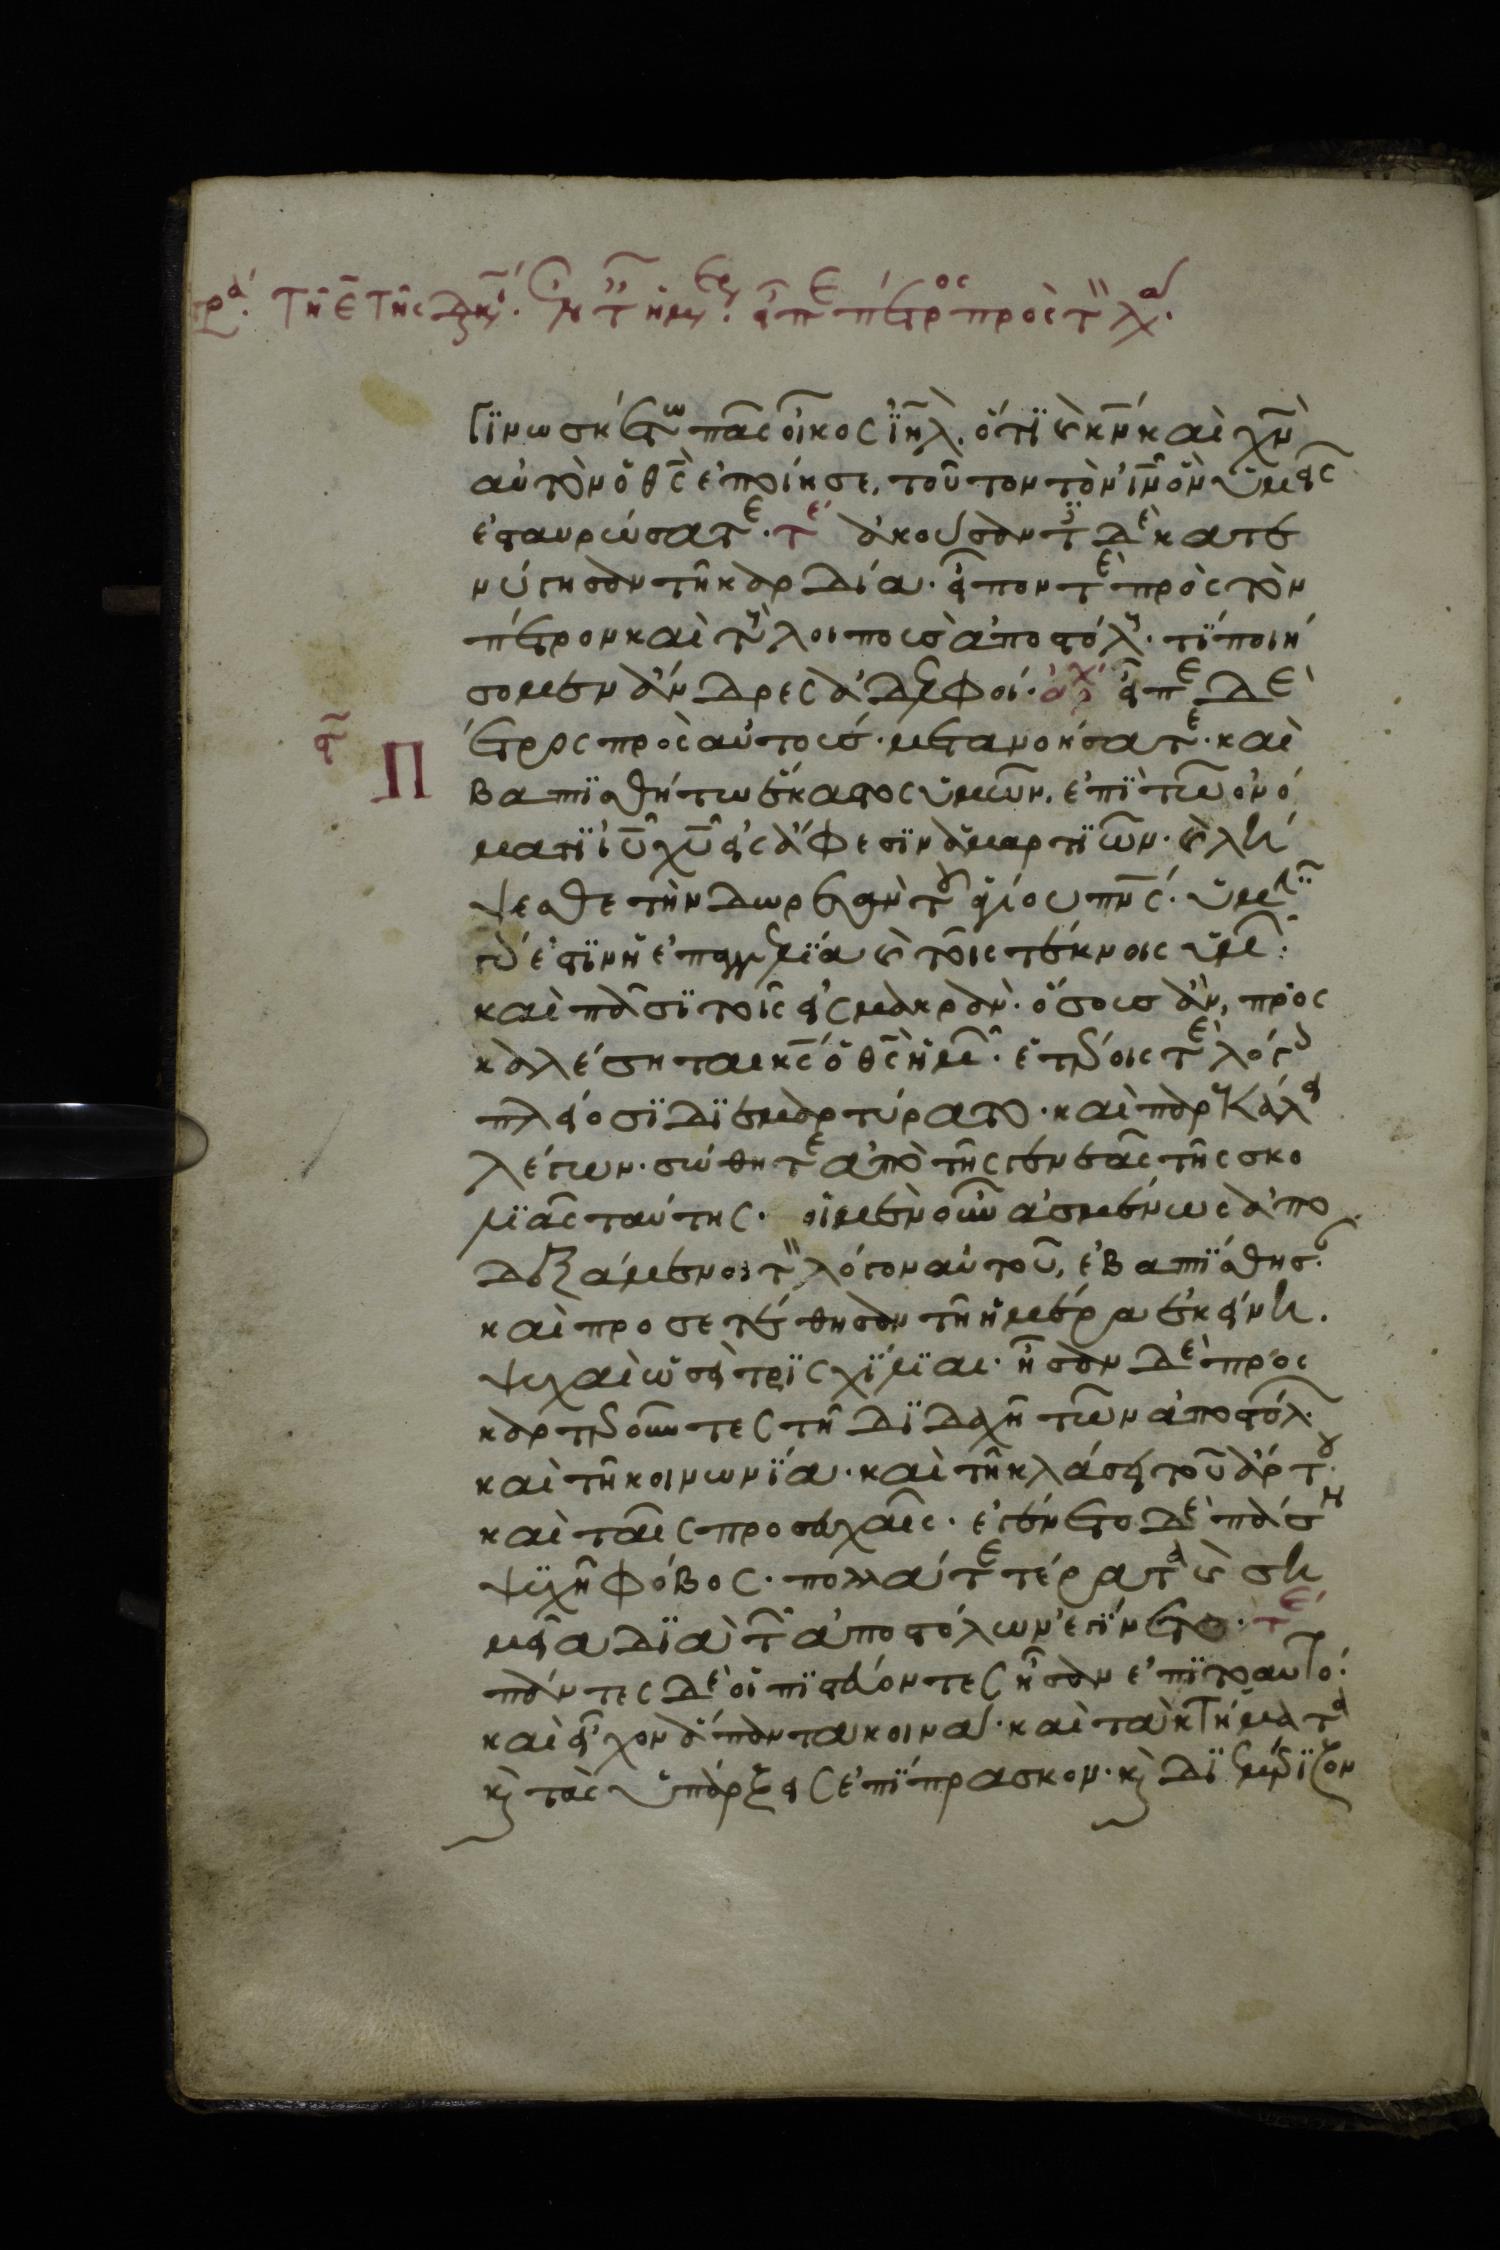 πρά. Τῆ ε̄ τῆς διακι. Ἐν τ ἡμερ. εἶπε πέτρος πρὸς τ λα
Γϊνωσκέτω πᾶς οἶκος ϊη̅λ. ὅτϊ καὶ κ̅ν καὶ χ̅ν
αὐτὸν ὁ θ̅ς ἐποίησε, τοῦτον τὸν ι̅ν ὃν ὑμεῖς
ἐσταυρώσατε. τε ἀκούσαντες δὲ κατε
νύγησαν τῆ καρδία. εἶπόντε πρὸς τὸν
πέτρον καὶ τοὺς λοιποὺς ἀποστόλους. τϊ ποιή
σομεν ἄνδρες ἀδελφοί. ἀρχ εἶπε δὲ
ει̅
Π έτρος πρὸς αὐτούς. μετανοήσατε. καὶ
βαπτϊσθήτω ἕκαστος ὑμῶν, ἐπϊ τῶ ὀνό
ματϊ ι̅υ χ̅υ εἰς ἄφεσϊν ἁμαρτϊῶν. καὶ λή
ψεσθε τὴν δωρεὰν τοῦ ἁγίου πν̅ς. ὑμῖν
γάρ ἐστϊν ἡ ἐπαγγελϊα καὶ τοῖς τέκνοις ὑμῶν.
καὶ πᾶσϊ τοῖς εἰς μακρὰν. ὅσους ἂν, προς
καλέσηται κ̅ς ὁ θ̅ς ἡμῶν. ἑτέροις τε λόγοις
πλείοσϊ δϊεμαρτύρατο. καὶ παρεκάλει
λέγων. σώθητε ἀπὸ τῆς γενεᾶς τῆς σκο
λϊᾶς ταύτης. οἱ μὲν οὖν ἀσμένως ἀπο
δεξάμενοι τὸν λόγον αὐτοῦ, ἐβαπτϊσθησαν.
καὶ προσετέθησαν τῆ ἡμέρα ἐκείνη.
ψυχαὶ ὡσεὶ τρϊσχϊλϊαι. ἦσαν δὲ προς
καρτεροῦντες τῆ δϊδαχῆ τῶν ἀποστόλων.
καὶ τῆ κοινωνϊα. καὶ τῆ κλάσει τοῦ ἄρτου.
καὶ ταῖς προσευχαῖς. ἐγένετο δὲ πάση
ψϋχῆ φόβος. πολλά τε τέρατα καὶ ση
μεῖα δϊὰ τῶν ἀποστόλων ἐγϊνετο. τε
πάντες δὲ οἱ πϊστεύοντες ἦσαν ἐπϊ τὸ αὐτό.
καὶ εἶχον ἅπαντα κοινά. καὶ τὰ κτήματα
καὶ τὰς ὑπάρξεις ἐπϊπρασκον. καὶ δϊεμέρϊζον